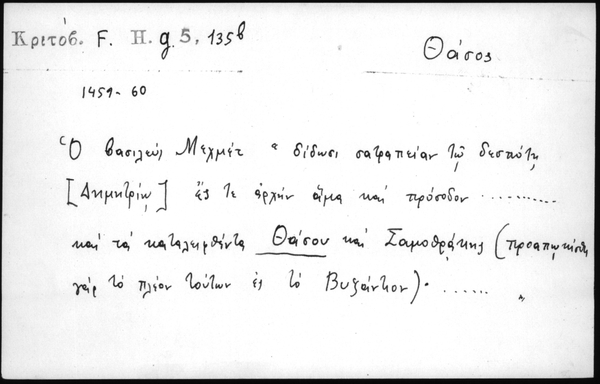 Κριτόβ. F. H. g. 5, 135b
Θάσος
1459-60
Ὁ βασιλεύς Μεχμέτ " δίδωσι σατραπείαν τῷ δεσπότῃ
[Δημητρίῳ] ἔς τε ἀρχήν ἅμα καί πρόσοδον ..........
καί τά καταλειφθέντα Θάσου καί Σαμοθρᾴκης (προαπῳκίσθη
γάρ τό πλέον τούτων ἐς τό Βυζάντιον). ...... "